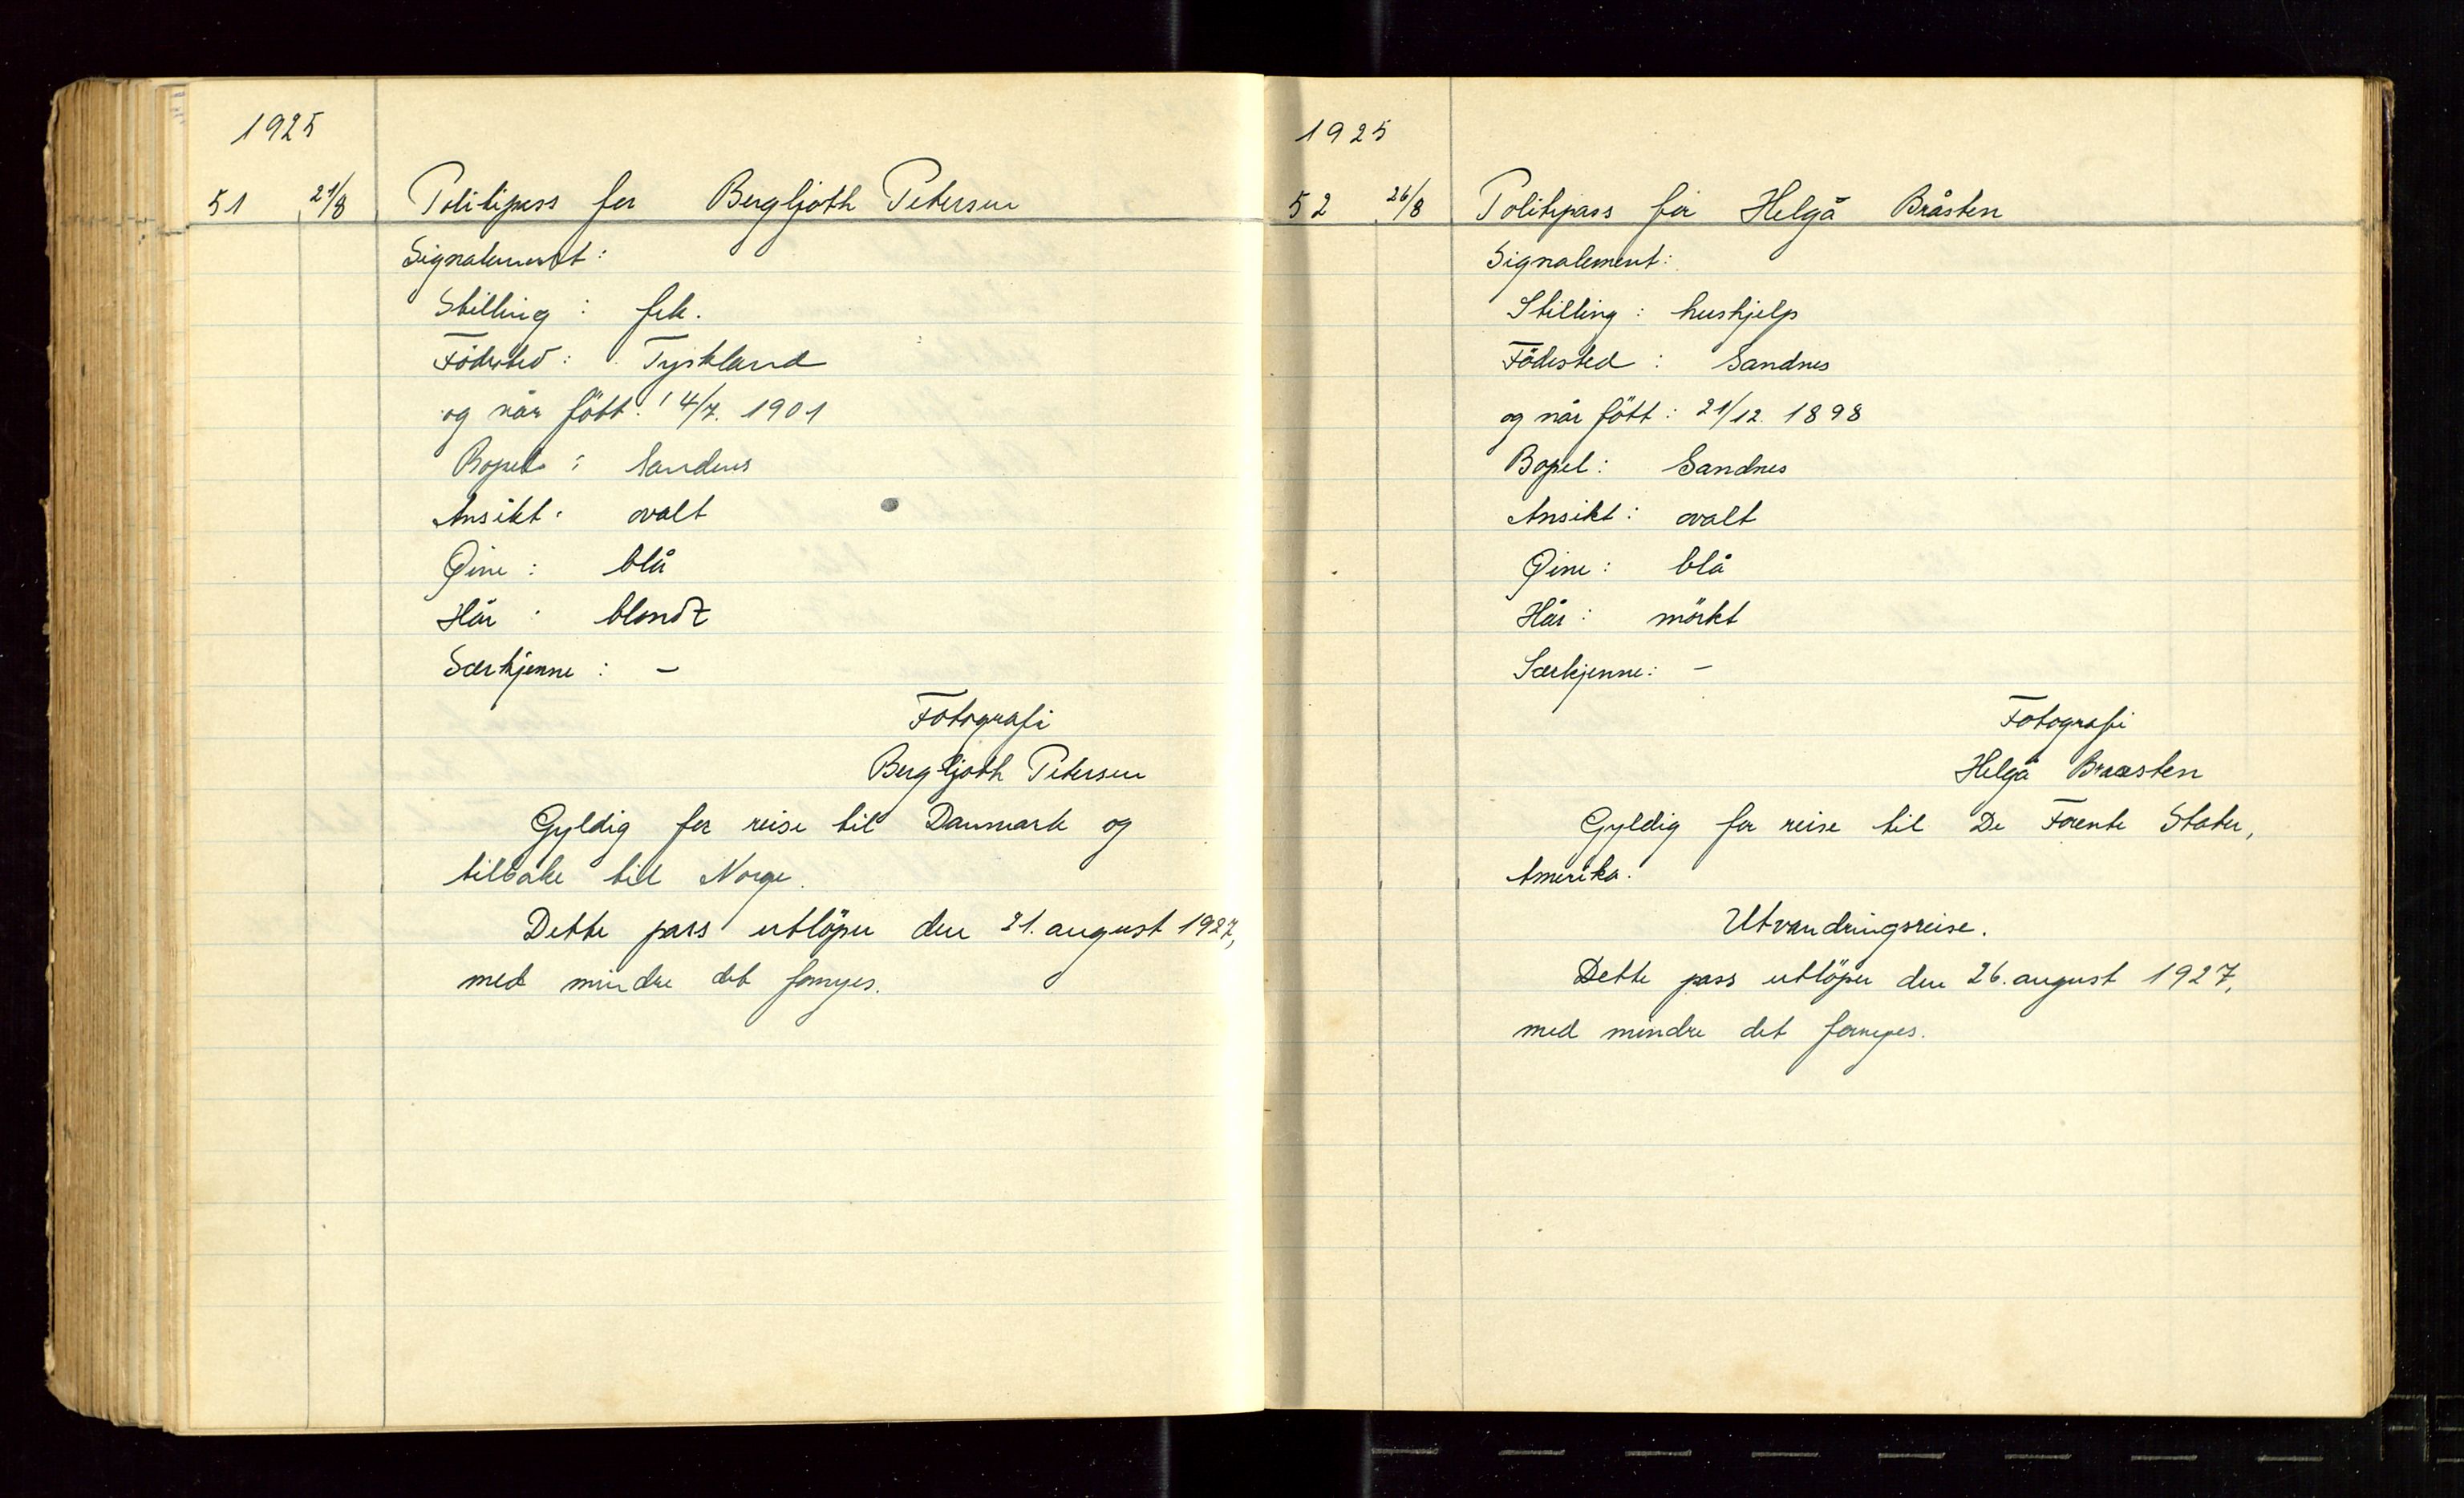 1925
51 21/8 Politipass for Bergljoth Petersen
Signalement:
Stilling: frk.
Födested: Tyskland
og når fött: 14/7. 1901
Bopel: Sandnes
Ansikt: ovalt
Øine: blå
Hår: blondt
Særkjenne: –
Fotografi
Bergljoth Petersen
Gyldig for reise til Danmark og
tilbake til Norge.
Dette pass utlöper den 21. august 1927,
med mindre det fornyes.
1925
52 26/8 Politipass for Helga Bråsten
Signalement:
Stilling: hushjelp
Födested: Sandnes
og når fött: 21/12. 1898
Bopel: Sandnes
Ansikt: ovalt
Øine: blå
Hår: mörkt
Særkjenne: –
Fotografi
Helga Braasten
Gyldig for reise til De Forente Stater,
Amerika.
Utvandringsreise.
Dette pass utlöper den 26. august 1927,
med mindre det fornyes.